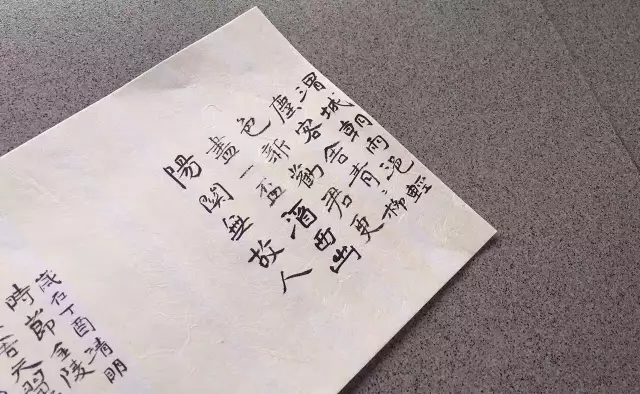 渭城朝雨浥輕
塵客舍青〻柳
色新勸君更
盡一盃酒西出
陽關無故人
歲在丁酉清明
時節金陵
天